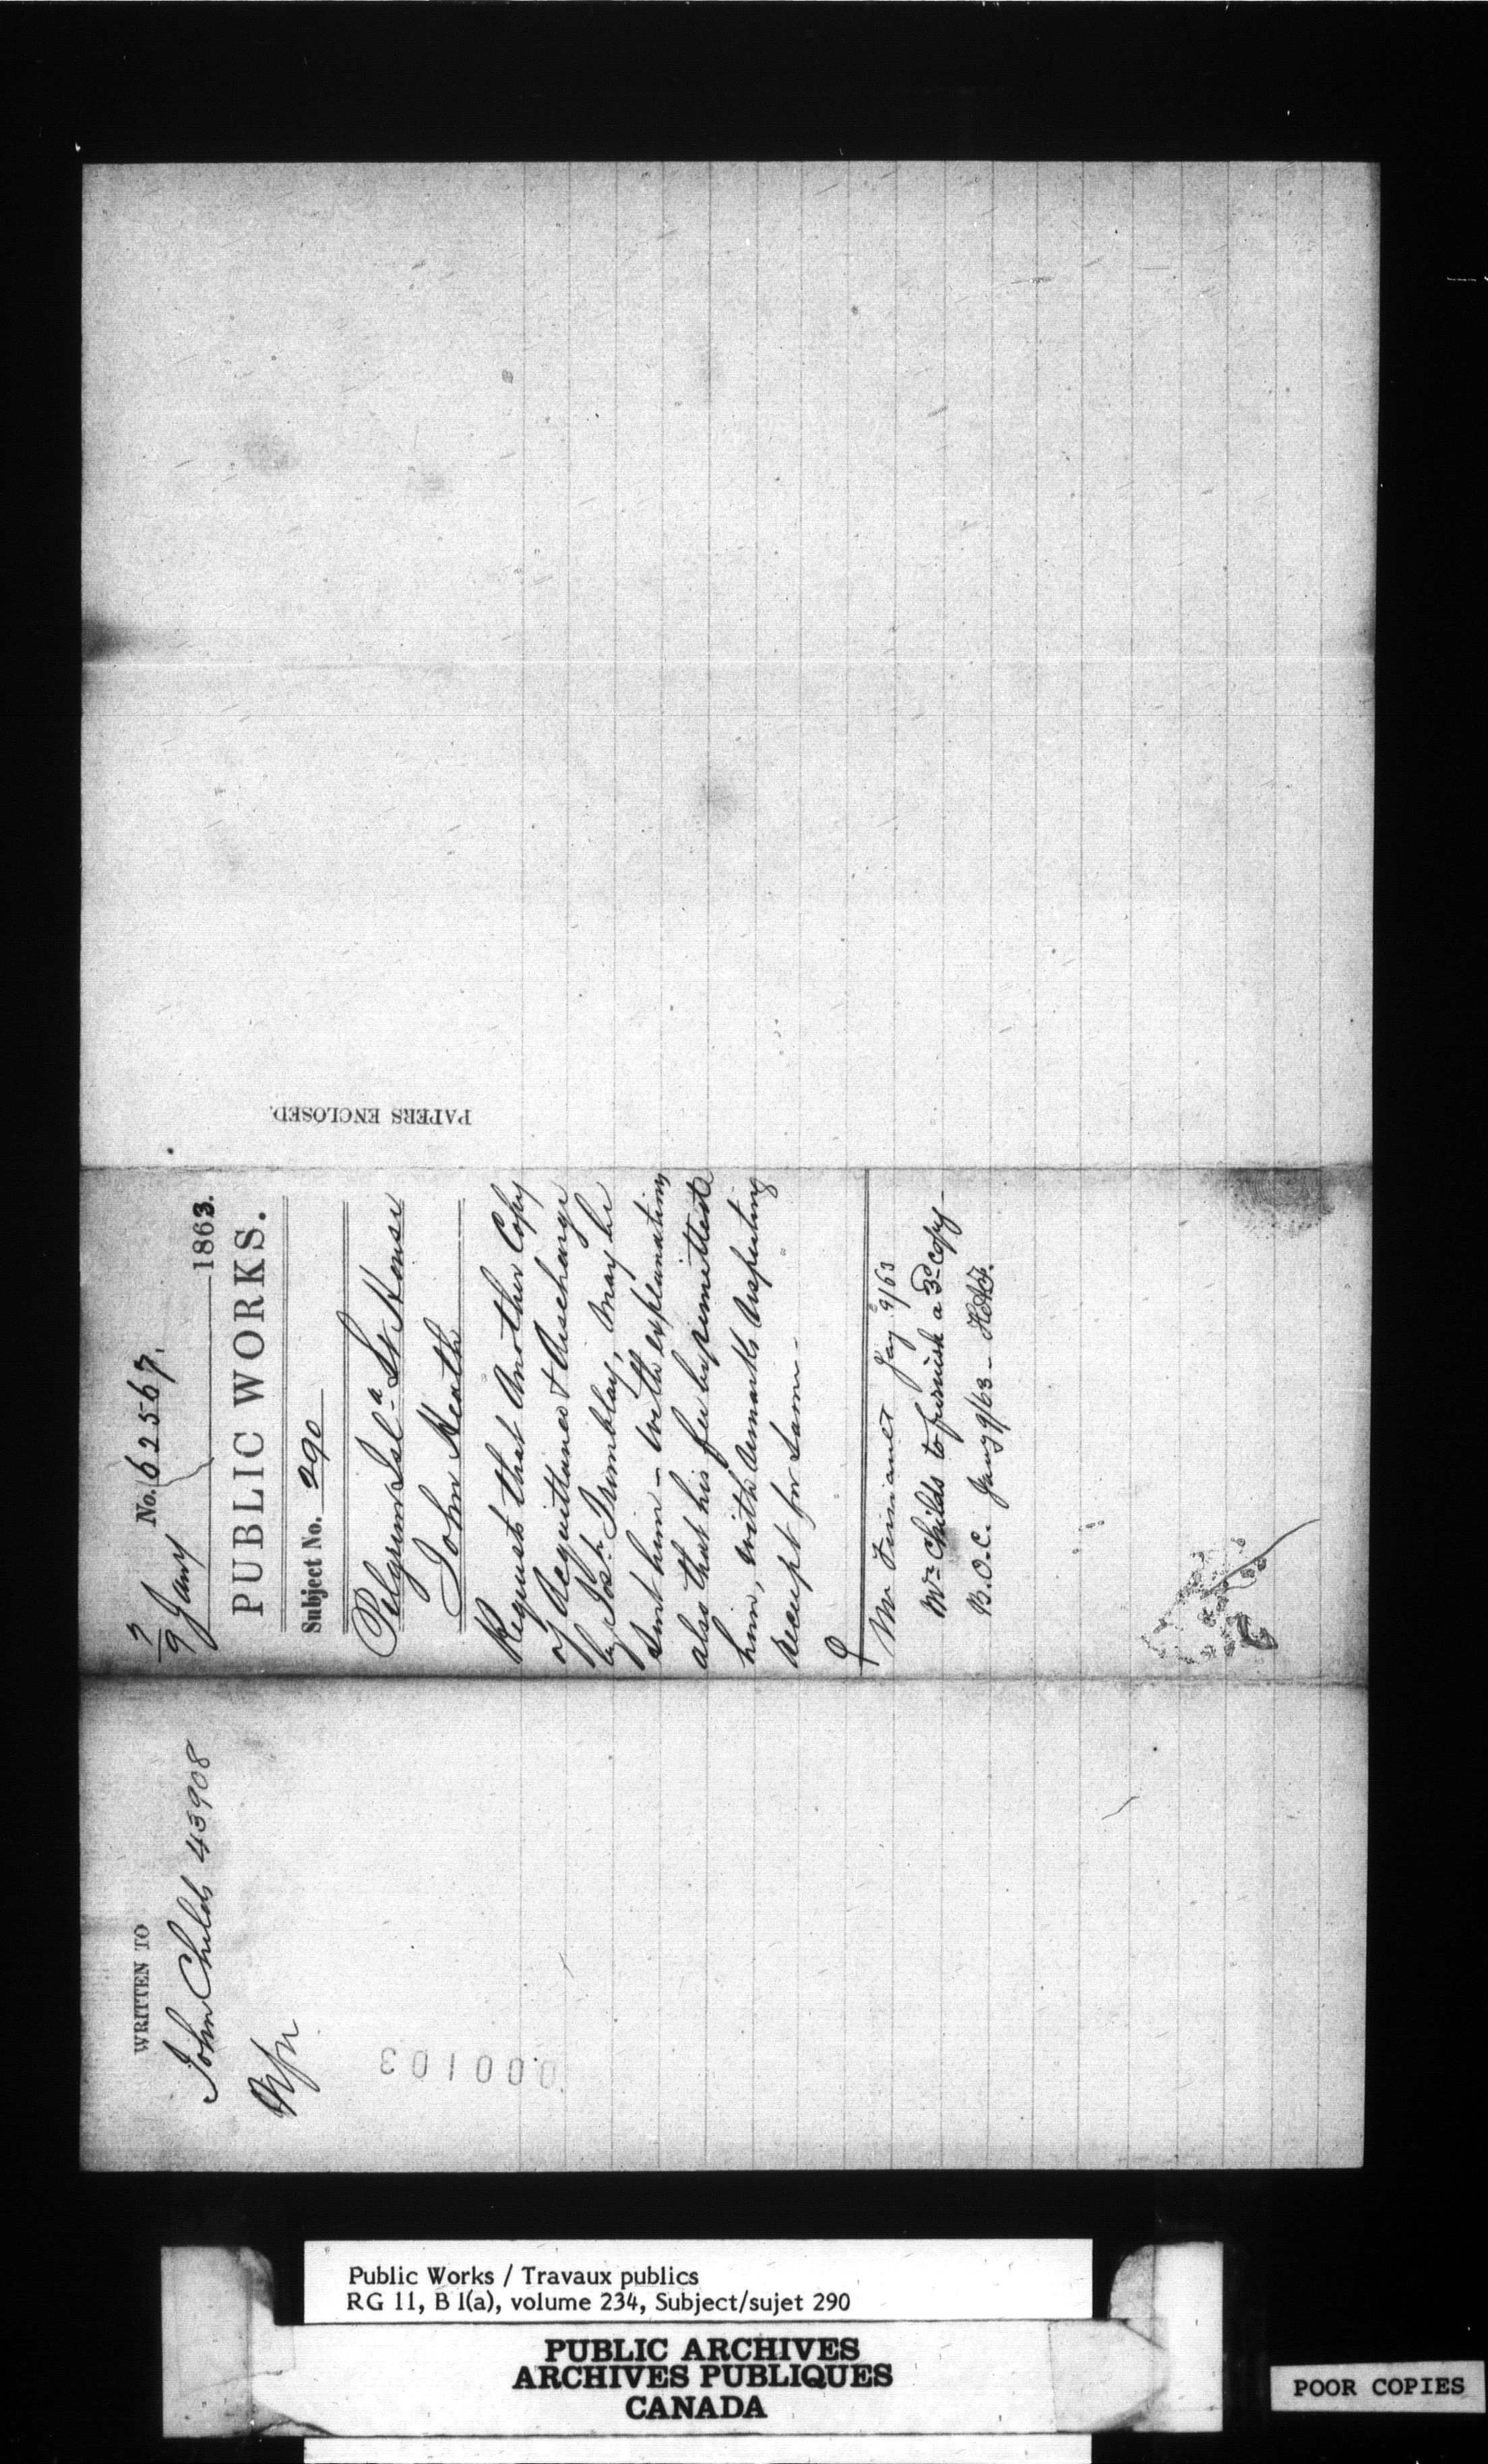 WRITTEN TO
John Childs 43908
000103
7/9 Jany No. 62567. 1863.
PUBLIC WORKS.
Subject No. 290
Pelgrim Isl.a Lt House
John Heath
Requests that another Copy
of Acquittance & discharge
by Josh Trimblay, may be
sent him - with explanations
also that his fee be remitted
him, with remarks respecting
receipt for same -
Jany 9/63
Mr Childs to furnish a 3d copy
B.O.C. Jany 9/63 -
PAPERS ENCLOSED.
Public Works / Travaux publics
RG 11, B 1(a), volume 234, Subject/sujet 290
PUBLIC ARCHIVES
ARCHIVES PUBLIQUES
CANADA
POOR COPIES